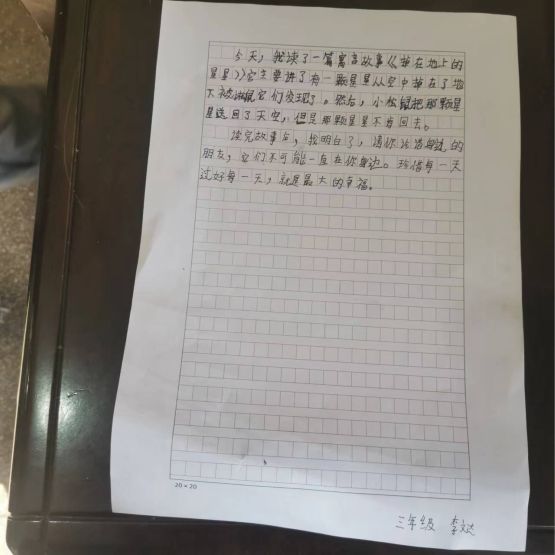 今天，我读了一篇寓言故事《掉在地上的
星星》它主要讲了有一颗星星从空中掉在了地
下被 它们发现了。然后，小松鼠把那颗星
星送回了天空，但是那颗星星不肯回去。
读完故事后，我明白了，请你 的
朋友，它们不可能一直在你身边。珍惜每一天
过好每一天，就是最大的幸福。
20×20
三年级 李斌